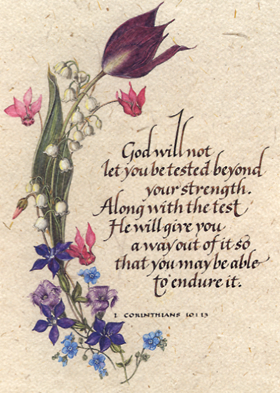 God will not
let you be tested beyond
your strength.
Along with the test
He will give you
a way out of it so
that you may be able
to endure it.
1 CORINTHIANS 10:13